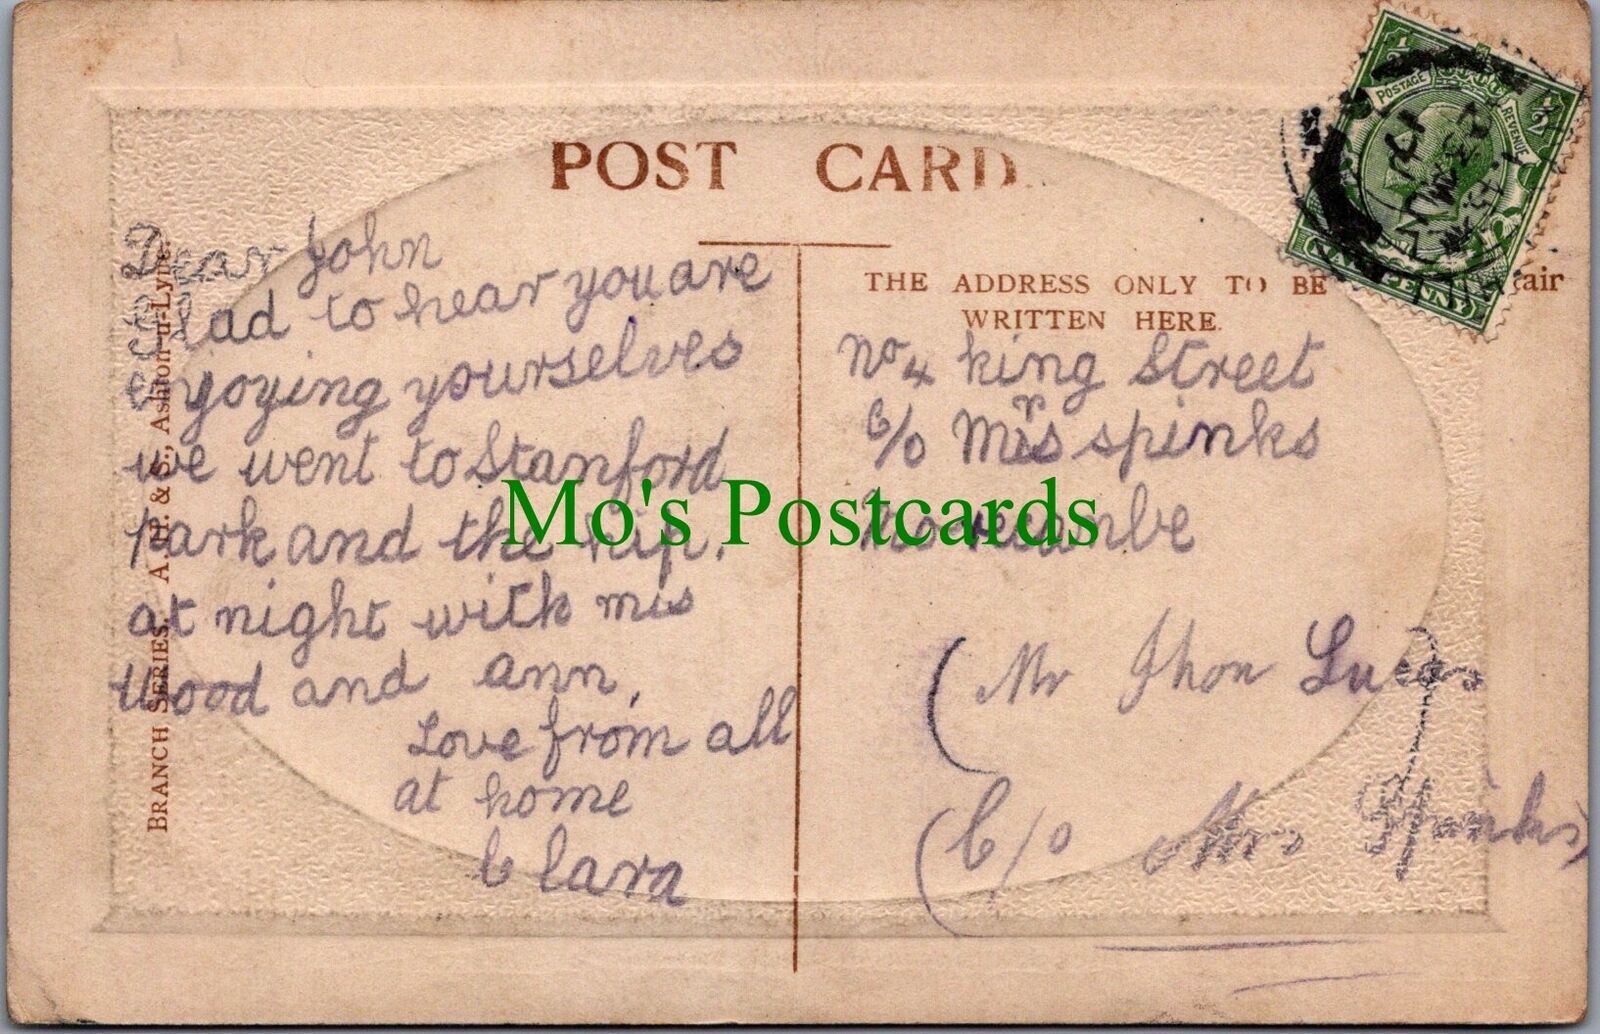 POST CARD
Dear John
glad to hear you are
enjoying yourselves
we went to Stanford
Park and the hip.
at night with mis
Wood and ann,
Love from all
at home
Clara
THE ADDRESS ONLY TO BE
WRITTEN HERE.
No 4 King Street
C/o Mrs spinks
Morecambe
(Mr Jhon
(C/o Mrs Spinks)
BRANCH SERIES. A. H. & S., Ashton-u-Lyne.
POSTAGE
REVENUE
1/2
1/2
HALFPENNY
air
Mo's Postcards